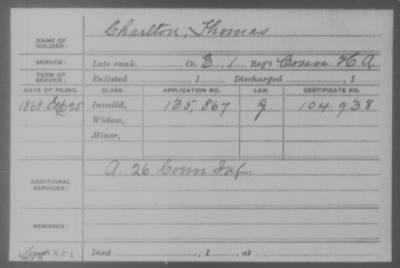 NAME OF SOLDIER: Charlton, Thomas
SERVICE: Late rank, Co. E, 1 Reg't Conn. H.A.
TERM OF SERVICE: Enlisted , 1 Discharged , 1
DATE OF FILING. CLASS. APPLICATION NO. LAW. CERTIFICATE NO.
1868 Sep 25 Invalid, 135,867 G 104,938
Widow,
Minor,
ADDITIONAL SERVICES: A. 26 Conn Inf.
REMARKS:
Died , 1 , at